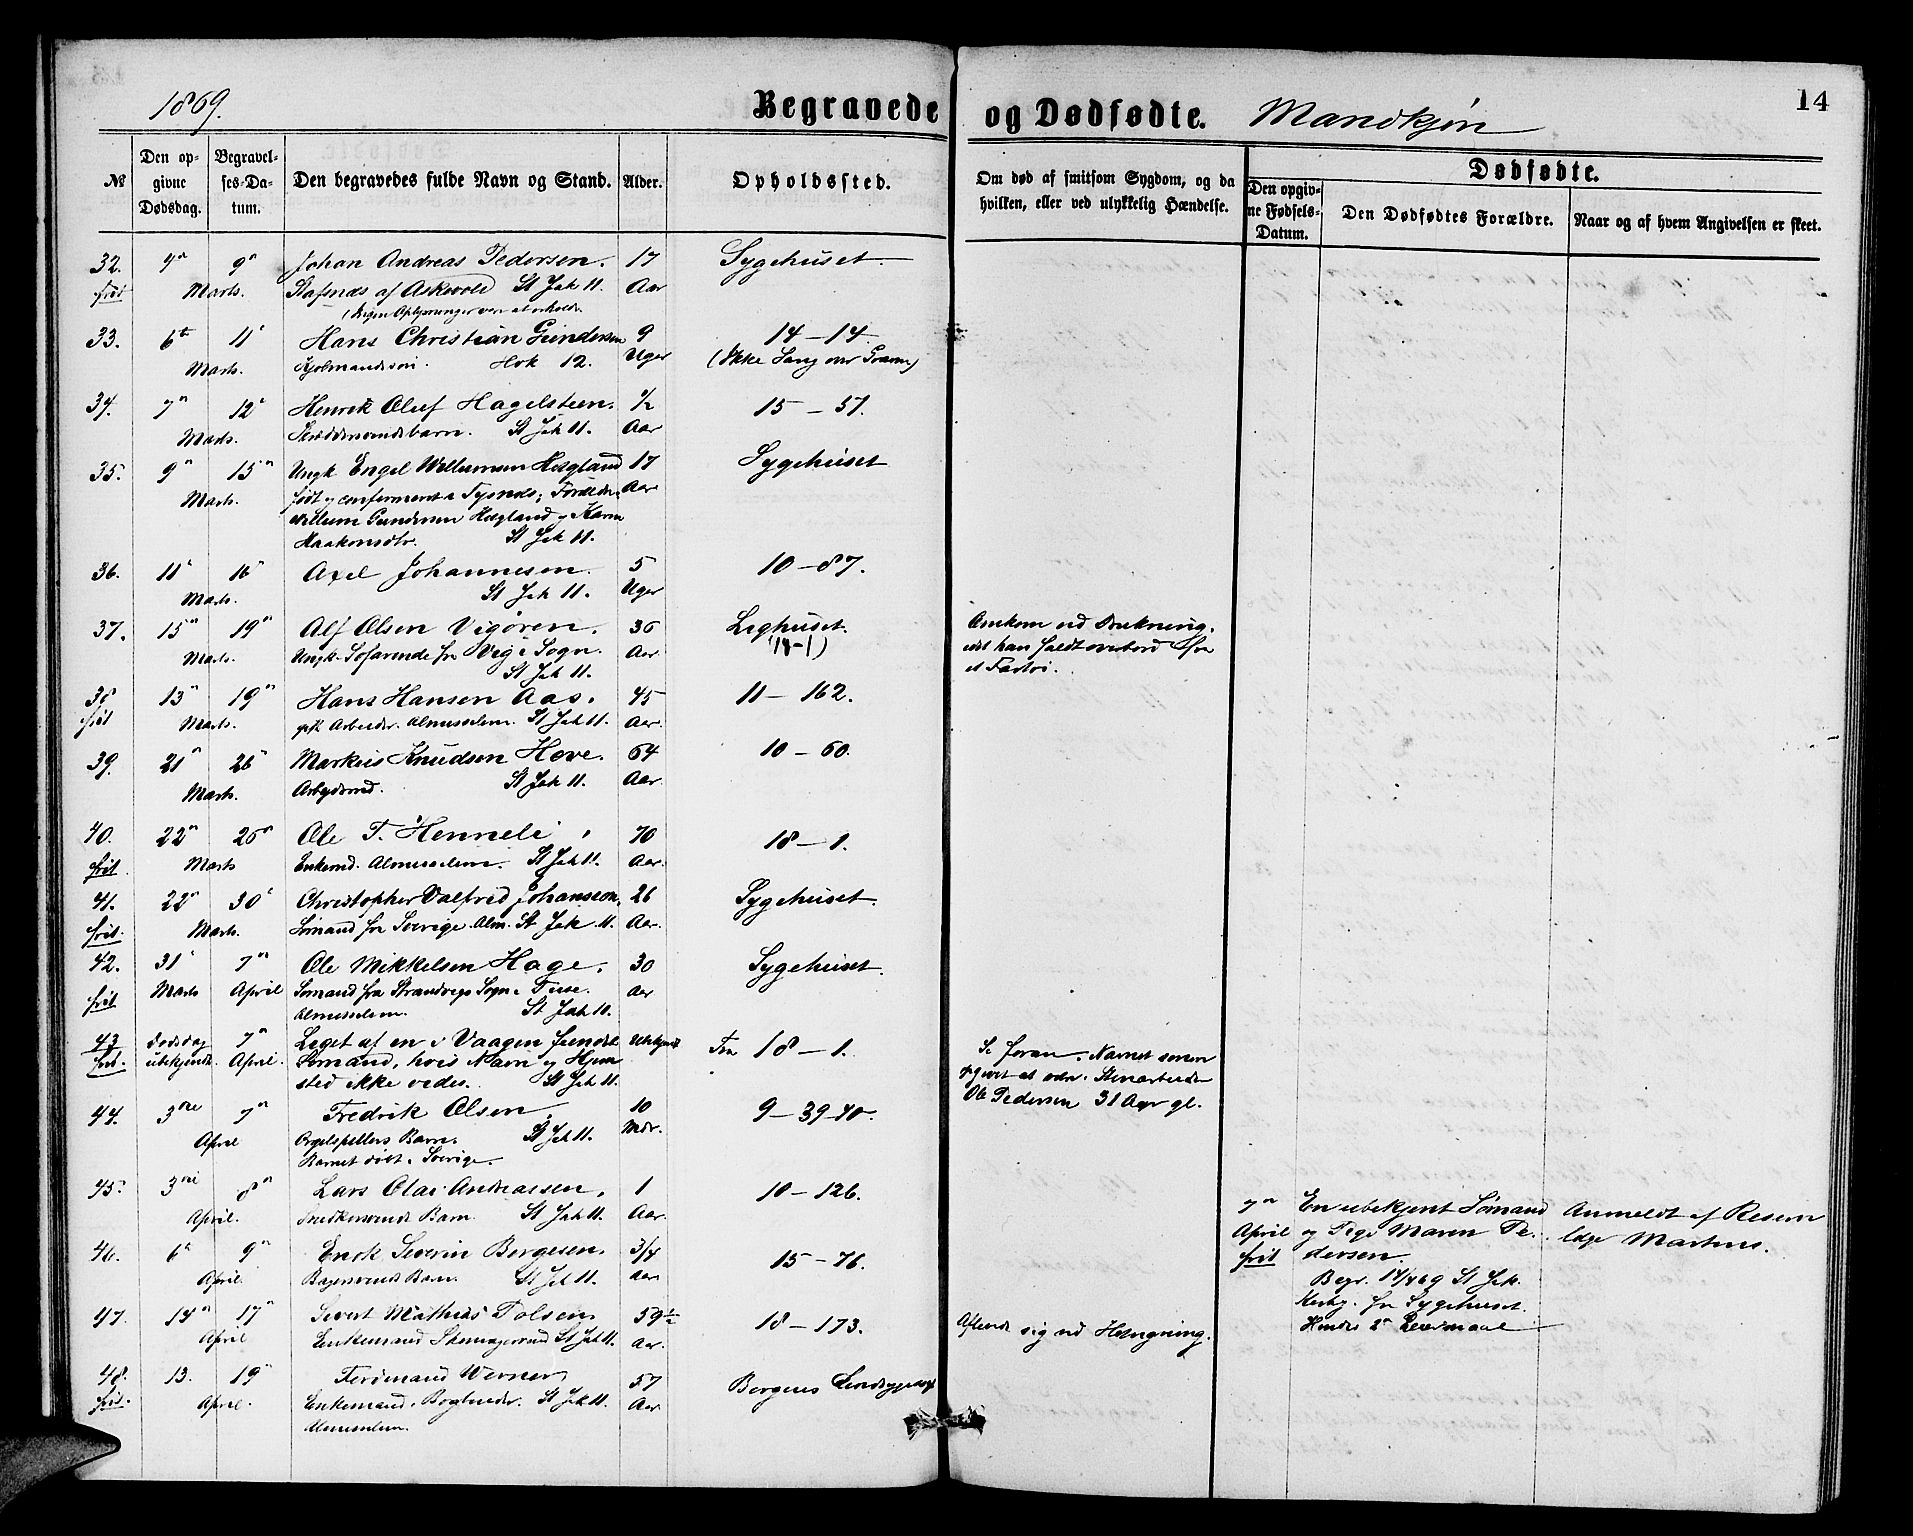 1869.
Begravede og Dødfødte. Mandkjøn
14
№
Den opgivne Dødsdag.
Begravelses-Datum.
Den begravedes fulde Navn og Stand.
Alder.
Opholdssted.
Om død af smitsom Sygdom, og da hvilken, eller ved ulykkelig Hændelse.
Dødfødte.
Den opgivne Fødsels-Datum.
Den Dødfødtes Forældre.
Naar og af hvem Angivelsen er skeet.
32. 7de 9de Johan Andreas Pedersen. 17 Sygehuset.
frit Marts. af Askevold St Jak 11. Aar
33. 6te 11te Hans Christian Gundersen 9 14–14.
Marts. Hok 12. Uger (Ikke Sang over Graven)
34. 7de 12te Henrik Oluf Hagelsteen. ½ 15–57.
Marts. St Jak 11. Aar
35. 9de 15de Ungk. Engel Willumsen Hegland 17 Sygehuset
Marts. født og confirmeret i Tysnæs; Forældre Aar
Willum Gundersen Hegland og Karen
Haakonsdtr. St Jak 11.
36. 11te 16de Axel Johannesen. 5 10–87.
Marts. St Jak 11. Uger
37. 15de 19de Alf Olsen Vigøren. 36 Lighuset. Omkom ved Drukning,
Marts. Ungk. Søfarende fra Vig i Sogn. Aar (18–1) idet han faldt overbord fra
St Jak 11. et Fartøi.
38 13de 19de Hans Hansen Aas. 45 11–162.
frit Marts. gift Arbeider. Almisselem. St Jak 11. Aar.
39. 21de 26de Markus Knudsen Hove. 64 10–60.
Marts. Arbeidsmd. St Jak 11. Aar.
40. 22de 26de Ole T. Henneli 70 18–1.
frit. Marts Enkemd. Almisselem. St Jak 11. Aar.
41. 22de 30te Christopher Valfrid Johansson, 26 Sygehuset.
frit. Marts. Sømand fra Sverige. Alm. St Jak 11. Aar.
42. 31te 7de Ole Mikkelsen Hage. 30 Sygehuset.
frit Marts April Sømand fra Strandvigs Sogn i Fuse. Aar
Almisselem. St Jak 11.
43 Dødsdag 7de Liget af en i Vaagen fundet Ubekjendt Fra 18–1. Se foran. Navnet senere
frit. ubekjendt. April. Sømand, hvis Navn og Hjemsted ikke vides. St Jak 11. opgivet at være. Stenarbeider
Ole Pedersen 31 Aar gl.
44. 3die 7de Fredrik Olsen, 10 9–39–40.
April Orgelspillers Barn. St Jak 11. Mdr.
Barnet født i Sverige.
45. 3die 8de Lars Olai Andreassen, 1 10–126.
April. Snedkersvends Barn. St Jak 11. Aar.
46. 6te 9de Enok Severin Børgesen. 3/4 15–76.
April. Bagersvends Barn. St Jak 11. Aar
47. 14de 17de Sivert Mathias Polsen 59½ 18–173. Aflivede sig ved Hængning.
April Enkemand St Jak 11. Aar.
48. 13. 19de Ferdinand Werner 57 Bergens
frit. April. Enkemand. Bogbinder. St Jak 11. Aar
Almisselem.
7de En ubekjent Sømand Anmeldt af Reserve
April og Pige Maren Pe- læge Martens.
frit dersen.
Begr. 14/4 69 St Jak.
Kirkeg. fra Sygehuset.
Hendes 2de Leiermaal